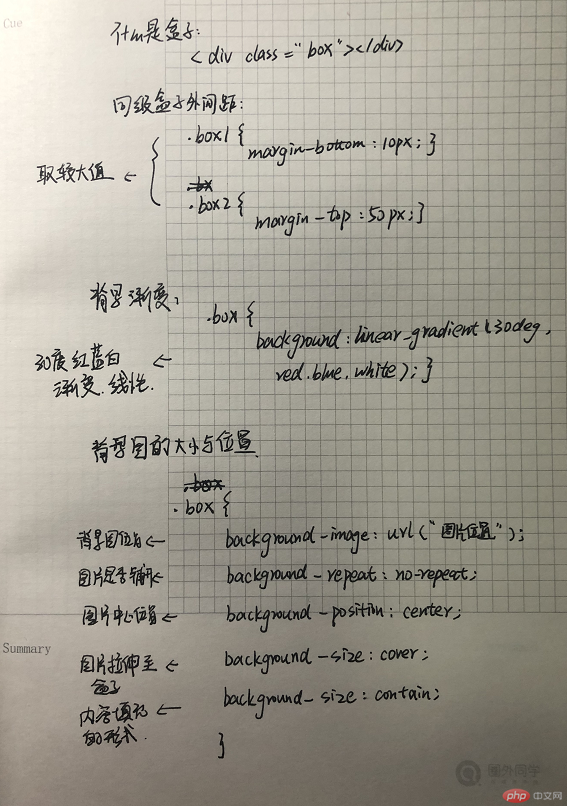 Cue
什么是盒子:
<div class="box"></div>
同级盒子外间距:
.box1 {
margin-bottom: 10px; }
取较大值 ←
.box2 {
margin-top: 50px; }
背景渐变:
.box {
background: linear-gradient(30deg,
30度红蓝白 ←
red, blue, white); }
渐变.线性.
背景图的大小与位置
.box {
背景图位置 ← background-image: url("图片位置");
图片是否铺开 ← background-repeat: no-repeat;
图片中心位置 ← background-position: center;
Summary
图片拉伸至 ← background-size: cover;
盒子
内容填充 ← background-size: contain;
的形式.
}
圈外同学
php 中文网